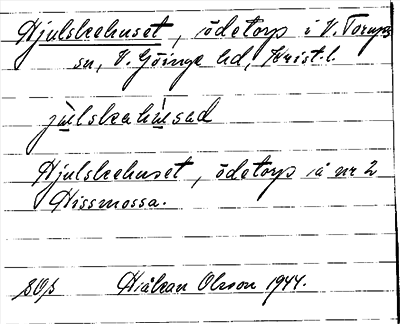 Hjulskahuset, ödetorp i V. Torups
sn, V. Göinge hd, Krist. l.
julskahusad
Hjulskahuset, ödetorp å nr 2
Hissmossa.
Håkan Olsson 1944.